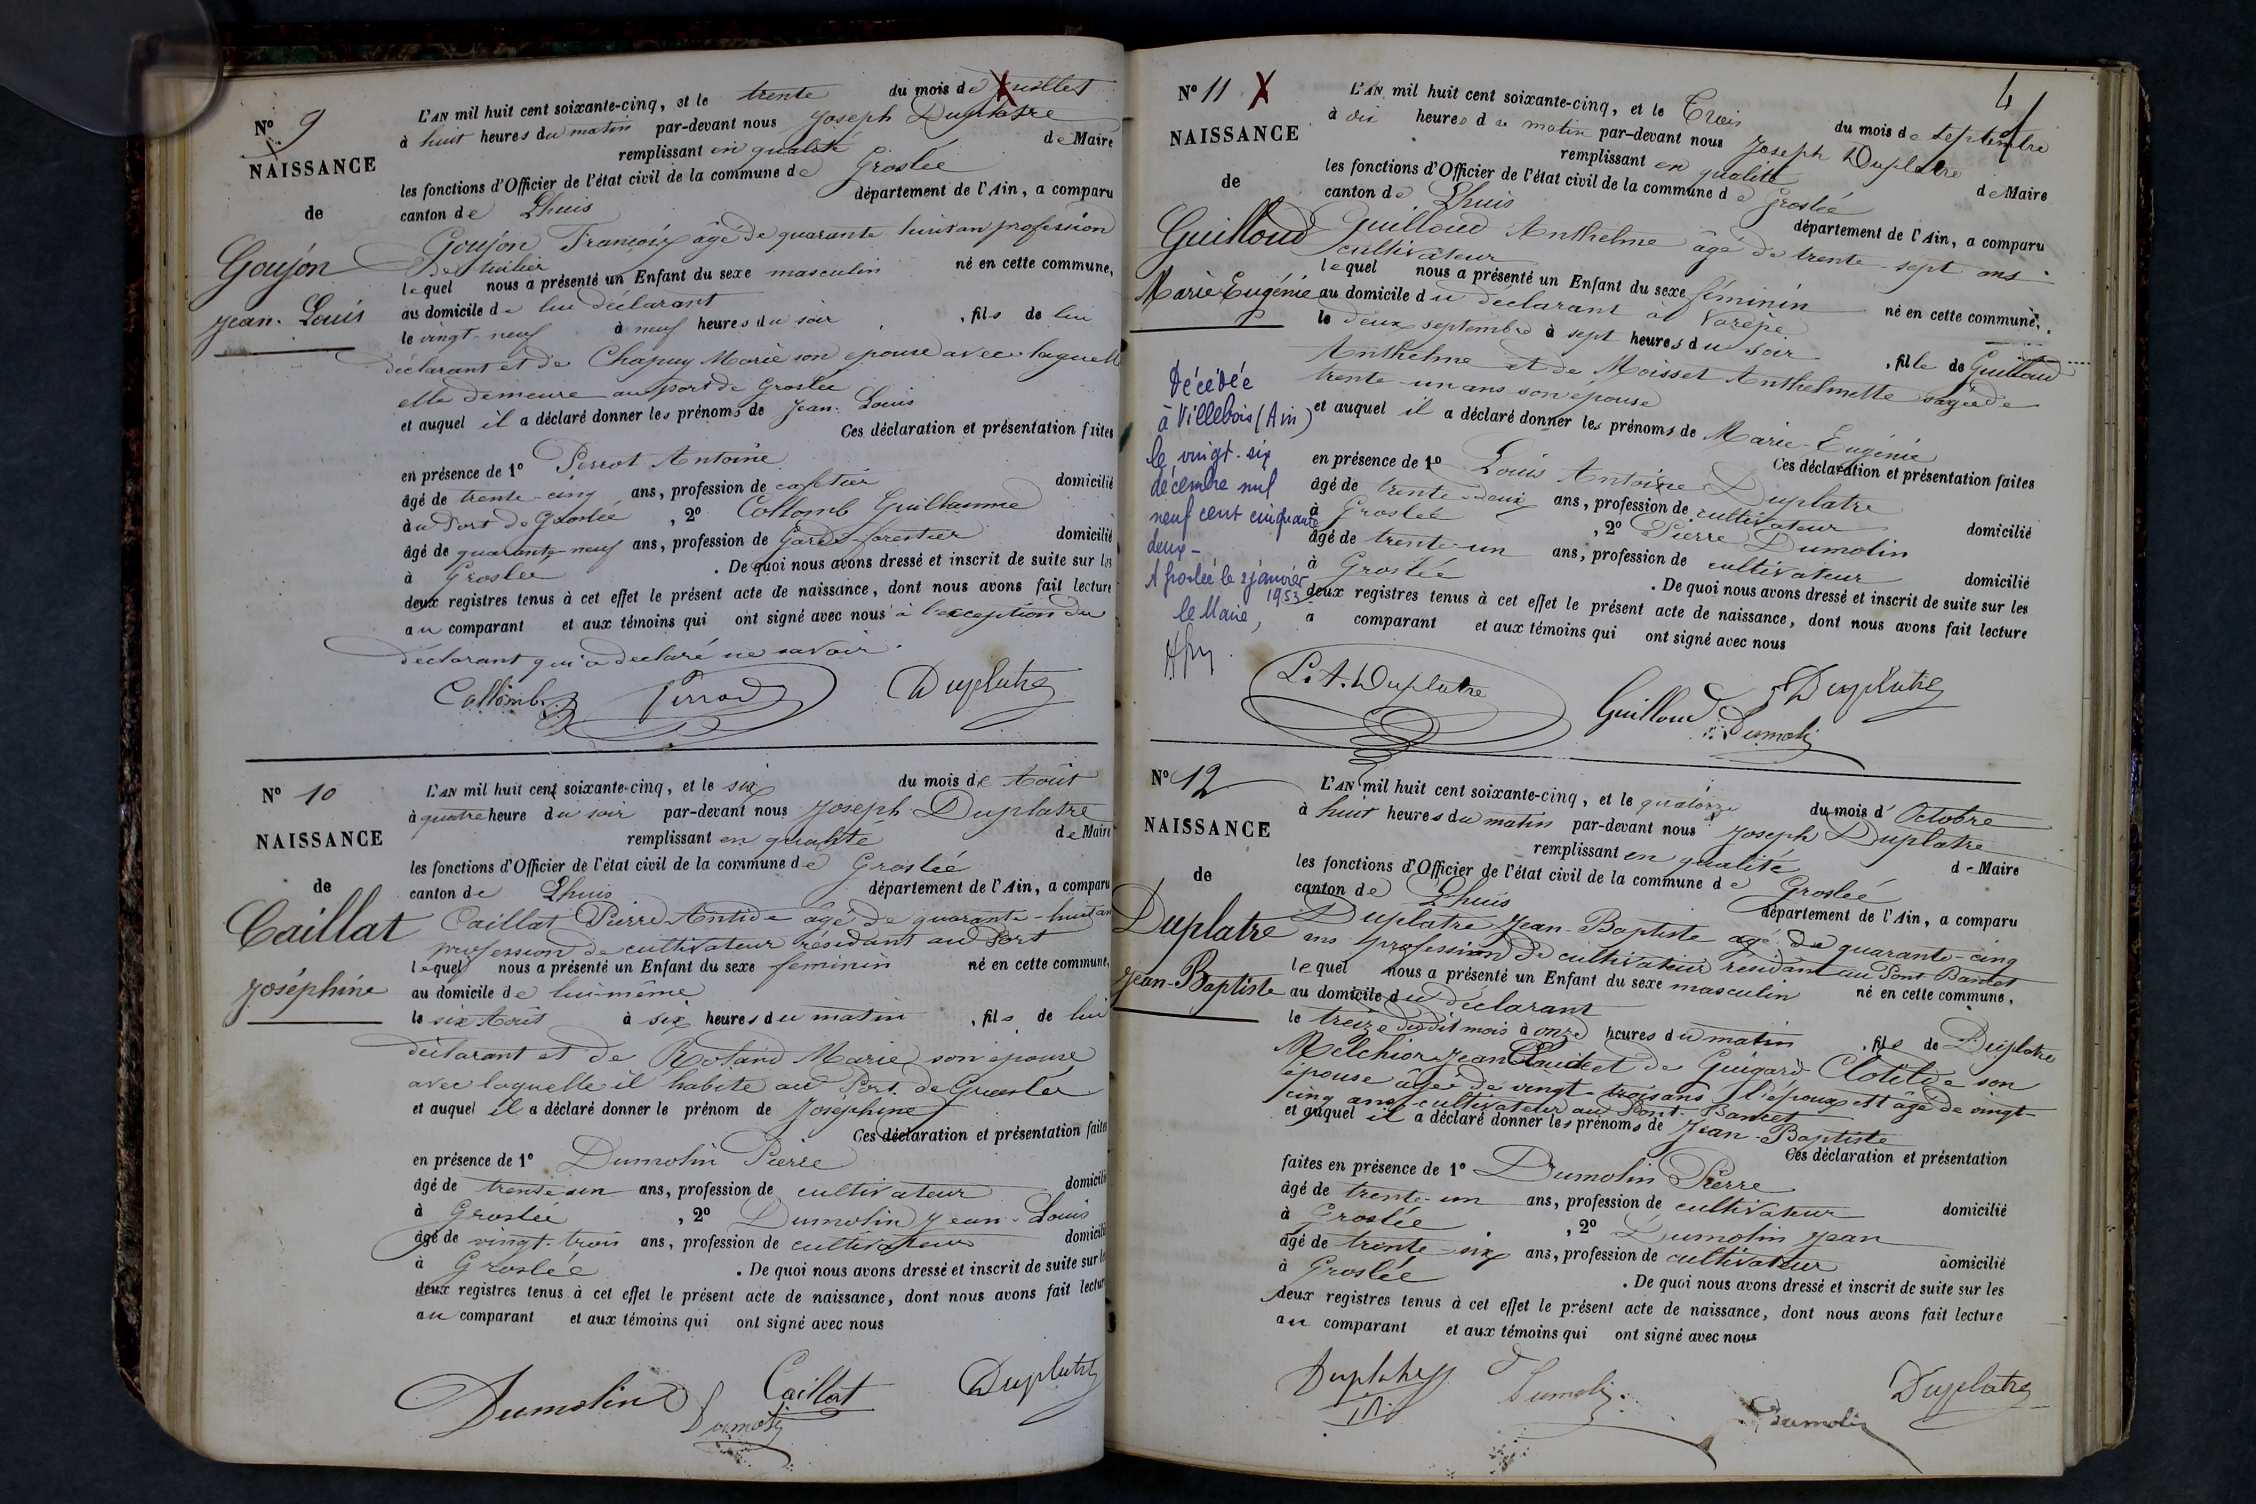 N° 9
NAISSANCE
de
Goujon
Jean-Louis
L'AN mil huit cent soixante-cinq, et le trente du mois de Juillet
à huit heures du matin par-devant nous Joseph Duplatre
remplissant en qualité de Maire
les fonctions d'Officier de l'état civil de la commune de Groslée
canton de Lhuis département de l'Ain, a comparu
Goujon François agé de quarante huit an profession
de tuilier
lequel nous a présenté un Enfant du sexe masculin né en cette commune,
au domicile de lui déclarant
le vingt-neuf à neuf heures du soir, fils de lui
déclarant et de Chapuy Marie son epouse avec laquelle
elle demeure au port de Groslée
et auquel il a déclaré donner les prénoms de Jean-Louis
Ces déclaration et présentation faites
en présence de 1° Perrot Antoine
âgé de trente-cinq ans, profession de cafetier domicilié
à au Port de Groslée, 2° Collomb Guillaume
âgé de quarante-neuf ans, profession de Garde-forestier domicilié
à Groslée. De quoi nous avons dressé et inscrit de suite sur les
deux registres tenus à cet effet le présent acte de naissance, dont nous avons fait lecture
au comparant et aux témoins qui ont signé avec nous à l'exception du
déclarant qui a déclaré ne savoir.
Collomb Perrod Duplatre
N° 10
NAISSANCE
de
Caillat
Joséphine
L'AN mil huit cent soixante-cinq, et le six du mois de Août
à quatre heure du soir par-devant nous Joseph Duplatre
remplissant en qualité de Maire
les fonctions d'Officier de l'état civil de la commune de Groslée
canton de Lhuis département de l'Ain, a comparu
Caillat Pierre Antide âgé de quarante-huit an
profession de cultivateur résidant au Port
lequel nous a présenté un Enfant du sexe feminin né en cette commune,
au domicile de lui-même
le six Août à six heures du matin, fils de lui
déclarant et de Roland Marie son épouse
avec laquelle il habite au Port de Groslée
et auquel il a déclaré donner le prénom de Joséphine
Ces déclaration et présentation faites
en présence de 1° Dumolin Pierre
âgé de trente-un ans, profession de cultivateur domicilié
à Groslée, 2° Dumolin Jean-Louis
âgé de vingt-trois ans, profession de cultivateur domicilié
à Groslée. De quoi nous avons dressé et inscrit de suite sur les
deux registres tenus à cet effet le présent acte de naissance, dont nous avons fait lecture
au comparant et aux témoins qui ont signé avec nous
Dumolin Caillat Duplatre
Dumolin
4
N° 11 X
NAISSANCE
de
Guilloud
Marie Eugénie
Décédée
à Villebois (Ain)
le vingt-six
décembre mil
neuf cent cinquante
deux -
A Groslée le 2 janvier
1953
le Maire,
L'AN mil huit cent soixante-cinq, et le Trois du mois de Septembre
à dix heures du matin par-devant nous Joseph Duplatre
remplissant en qualité de Maire
les fonctions d'Officier de l'état civil de la commune de Groslée
canton de Lhuis département de l'Ain, a comparu
Guilloud Anthelme âgé de trente-sept ans
cultivateur
lequel nous a présenté un Enfant du sexe féminin né en cette commune,
au domicile du déclarant à Varépe
le deux septembre à sept heures du soir, fille de Guilloud
Anthelme et de Moisset Anthelmette agée de
trente-un ans son épouse
et auquel il a déclaré donner les prénoms de Marie-Eugénie
Ces déclaration et présentation faites
en présence de 1° Louis Antoine Duplatre
âgé de trente-deux ans, profession de cultivateur domicilié
à Groslée, 2° Pierre Dumolin
âgé de trente-un ans, profession de cultivateur domicilié
à Groslée. De quoi nous avons dressé et inscrit de suite sur les
deux registres tenus à cet effet le présent acte de naissance, dont nous avons fait lecture
a comparant et aux témoins qui ont signé avec nous
L. A. Duplatre Guilloud Duplatre
Dumolin
N° 12
NAISSANCE
de
Duplatre
Jean-Baptiste
L'AN mil huit cent soixante-cinq, et le quatorze du mois d' Octobre
à huit heures du matin par-devant nous Joseph Duplatre
remplissant en qualité de Maire
les fonctions d'Officier de l'état civil de la commune de Groslée
canton de Lhuis département de l'Ain, a comparu
Duplatre Jean-Baptiste agé de quarante-cinq
ans profession de cultivateur résidant au Pont Bancet
lequel nous a présenté un Enfant du sexe masculin né en cette commune,
au domicile du déclarant
le treize dudit mois à onze heures du matin, fils de Duplatre
Melchior Jean Claude et de Guigard Clotilde son
épouse âgée de vingt-trois ans l'époux est âgé de vingt-
cinq ans cultivateur au Pont-Bancet
et auquel il a déclaré donner les prénoms de Jean-Baptiste
Ces déclaration et présentation
faites en présence de 1° Dumolin Pierre
âgé de trente-un ans, profession de cultivateur domicilié
à Groslée, 2° Dumolin Jean
âgé de trente-six ans, profession de cultivateur domicilié
à Groslée. De quoi nous avons dressé et inscrit de suite sur les
deux registres tenus à cet effet le présent acte de naissance, dont nous avons fait lecture
au comparant et aux témoins qui ont signé avec nous
Duplatre Dumolin Dumolin Duplatre